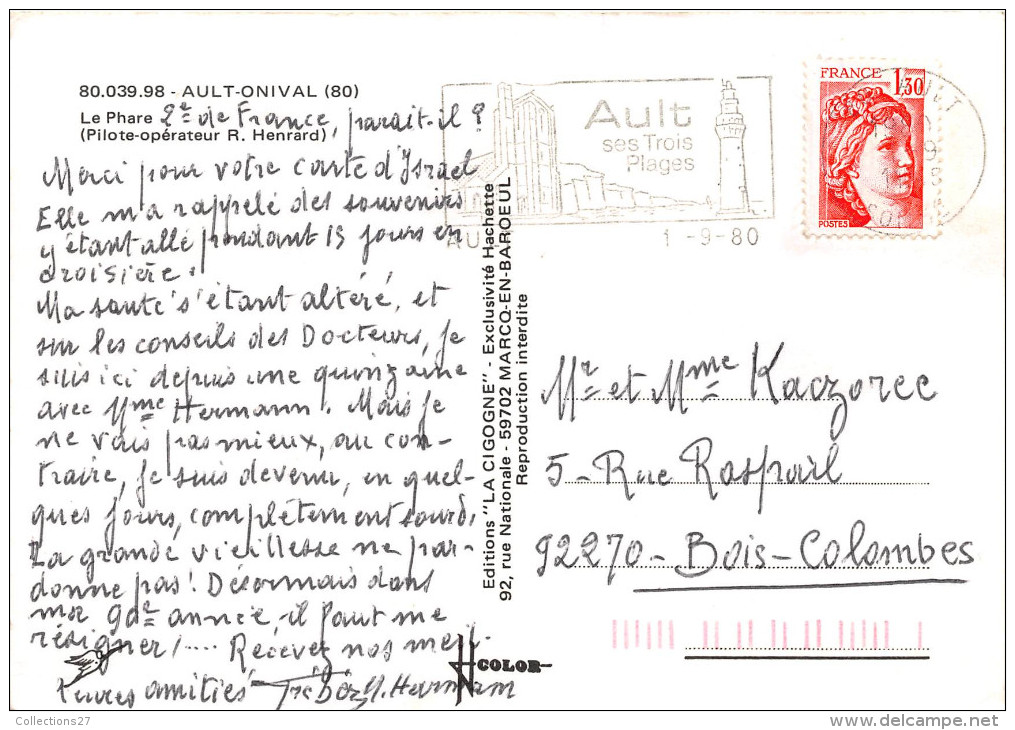 80.039.98 - AULT-ONIVAL (80)
Le Phare 2e de France, parait-il ?
(Pilote-opérateur R. Henrard)
Merci pour votre carte d'Israel
Elle m'a rappelé des souvenirs
y étant allé pendant 15 jours en
croisière.
Ma santé s'étant altéré, et
sur les conseils des Docteurs, je
suis ici depuis une quinzaine
avec Mme Hermann. Mais je
ne vais pas mieux, au con-
traire, je suis devenu, en quel-
ques jours, complètement sourd,
La grande vieillesse ne par-
donne pas ! Désormais dans
ma 90e année, il faut me
résigner ! .... Recevez nos meil-
leures amitiés Hermann
Editions "LA CIGOGNE" - Exclusivité Hachette
92, rue Nationale - 59702 MARCQ-EN-BAROEUL
Reproduction interdite
COLOR
Ault
ses Trois
Plages
1 -9-80
FRANCE 1,30
POSTES
Mr et Mme Kaczorec
5 - Rue Raspail
92270 - Bois-Colombes
Collections27
delcampe.net